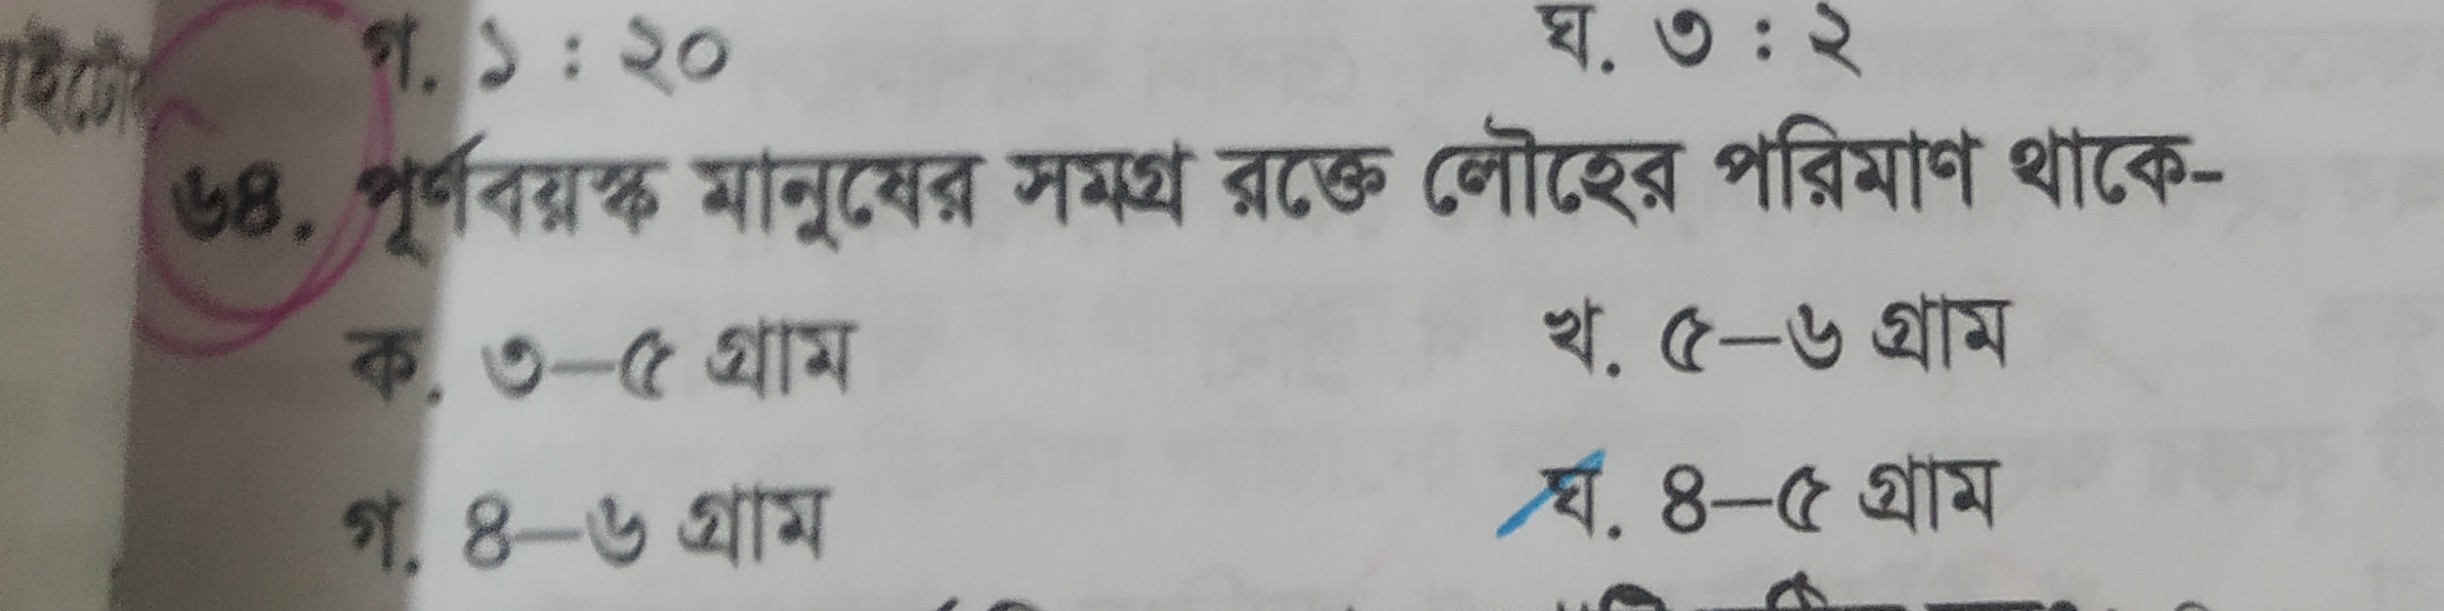 গ. ১ : ২০ ঘ. ৩ : ২
৬৪. পূর্ণবয়স্ক মানুষের সমগ্র রক্তে লৌহের পরিমাণ থাকে-
ক. ৩–৫ গ্রাম খ. ৫–৬ গ্রাম
গ. ৪–৬ গ্রাম ঘ. ৪–৫ গ্রাম